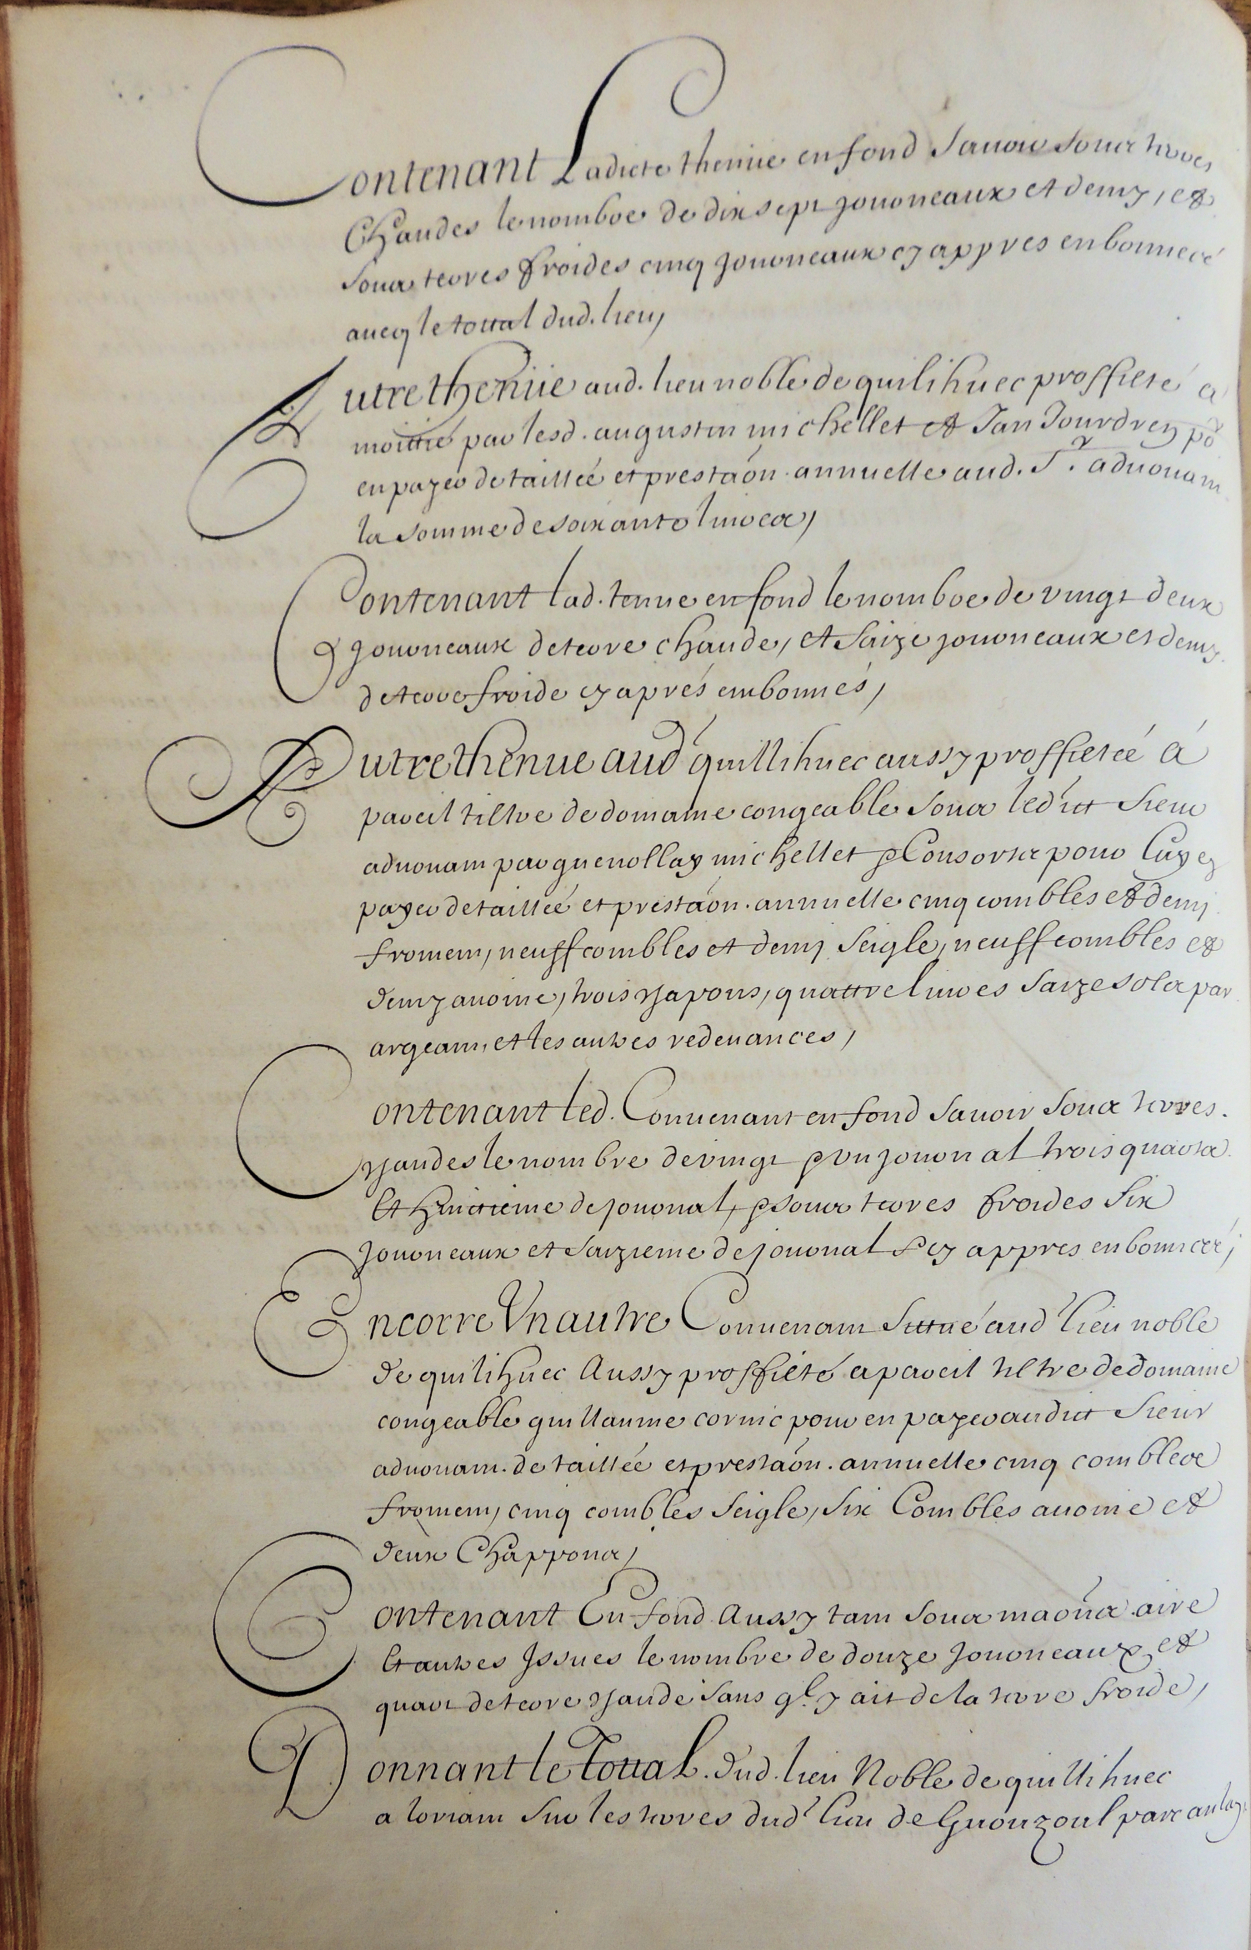 Contenant Ladicte thenue en fond Sauoir Soubz terres
Chaudes le nombre de dix sept journeaux et demy, et
Soubz terres froides cinq journeaux cy appres enbonnecé
aueq le tottal dud. lieu,
Autre thenüe aud. lieu noble de quilihuec proffiteé a
moittié par lesd. augustin michellet et Jan Jourdren po.^r
en payer de taillée et prestaõn. annuelle aud. S.^r aduouant
la somme de soixante liures,
Contenant lad. tenue en fond le nombre de vingt deux
journeaux de terre chaude, et Saize journeaux et demy
de terre froide cy aprés embonnés,
Autre thenue aud.^t quillihuec aussy proffiteé á
pareil tiltre de domaine congeable Soubz ledict Sieur
aduouant par guenollay michellet & Consorts pour luy en
payer de taillée et prestaõn. annuelle cinq combles et demj
froment, neuff combles et demj Seigle, neuff combles et
demy auoine, trois chapons, quattre liures Saize solz par
argeant, et les autres redeuances,
Contenant led. Conuenant en fond Sauoir Soubz terres.
chaudes le nombre de vingt & un journal trois quarts
Et huictieme de journal, & soubz terres froides Six
journeaux et Saizieme de journal & cy appres enbonnecé,
Encorre Un autre Conuenant Sittué aud.^t lieu noble
de quilihuec Aussy proffité a pareil tiltre de domaine
congeable guillaume cornic pour en payer audict Sieur
aduouant. de taillée et prestaõn. annuelle cinq combles
froment, cinq combles Seigle, Six Combles auoine et
deux Chappons,
Contenant En fond Aussy tant Soubz maõns aire
Et autres Issues le nombre de douze Journeaux et
quart de terre chaude Sans q.^l y ait de la terre froide,
Donnant le Tottal. dud. lieu Noble de quillihuec
a loriant Sur les terres dud.^t lieu de Guouzoul parc an